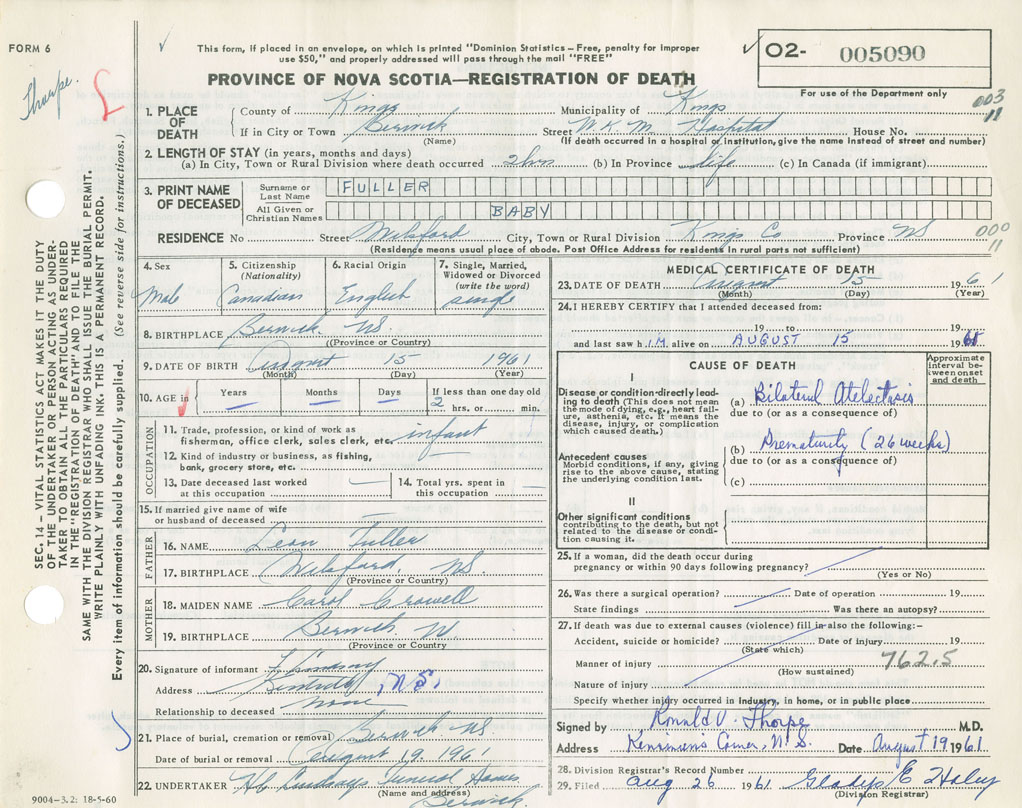 FORM 6
Thorpe.
This form, if placed in an envelope, on which is printed "Dominion Statistics – Free, penalty for improper
use $50," and properly addressed will pass through the mail "FREE"
O2- 005090
For use of the Department only
PROVINCE OF NOVA SCOTIA—REGISTRATION OF DEATH
003
11
1. PLACE OF DEATH County of Kings Municipality of Kings
If in City or Town Berwick Street W.K.M. Hospital House No.
(Name) (If death occurred in a hospital or institution, give the name instead of street and number)
2. LENGTH OF STAY (in years, months and days)
(a) In City, Town or Rural Division where death occurred 2 hrs (b) In Province life (c) In Canada (if immigrant)
3. PRINT NAME OF DECEASED Surname or Last Name FULLER
All Given or Christian Names BABY
RESIDENCE No Street City, Town or Rural Division Kings Co Province NS
000
11
(Residence means usual place of abode. Post Office Address for residents in rural parts not sufficient)
4. Sex 5. Citizenship (Nationality) 6. Racial Origin 7. Single, Married, Widowed or Divorced (write the word)
Male Canadian English single
8. BIRTHPLACE Berwick NS
(Province or Country)
9. DATE OF BIRTH August 15 1961
(Month) (Day) (Year)
10. AGE in Years Months Days If less than one day old
2 hrs. or min.
OCCUPATION
11. Trade, profession, or kind of work as
fisherman, office clerk, sales clerk, etc. infant
12. Kind of industry or business, as fishing,
bank, grocery store, etc.
13. Date deceased last worked at this occupation
14. Total yrs. spent in this occupation
15. If married give name of wife
or husband of deceased
FATHER
16. NAME Leon Fuller
17. BIRTHPLACE NS.
(Province or Country)
MOTHER
18. MAIDEN NAME Carol Crowell
19. BIRTHPLACE Berwick
(Province or Country)
20. Signature of informant Lindsay
Address Kentville, N.S.
Relationship to deceased none
21. Place of burial, cremation or removal Berwick NS.
Date of burial or removal August 19, 1961
22. UNDERTAKER Funeral Homes
(Name and address)
Berwick
9004—3.2: 18-5-60
MEDICAL CERTIFICATE OF DEATH
23. DATE OF DEATH August 15 1961
(Month) (Day) (Year)
24. I HEREBY CERTIFY that I attended deceased from:
19 to 19
and last saw h I.M. alive on AUGUST 15 1961
CAUSE OF DEATH
Approximate interval between onset and death
I
Disease or condition directly leading to death (This does not mean the mode of dying, e.g., heart failure, asthenia, etc. It means the disease, injury, or complication which caused death.)
(a) Bilateral Atelectasis
due to (or as a consequence of)
Antecedent causes
Morbid conditions, if any, giving rise to the above cause, stating the underlying condition last.
(b) Prematurity (26 weeks)
due to (or as a consequence of)
(c)
II
Other significant conditions
contributing to the death, but not related to the disease or condition causing it.
25. If a woman, did the death occur during
pregnancy or within 90 days following pregnancy?
(Yes or No)
26. Was there a surgical operation? Date of operation 19
State findings Was there an autopsy?
27. If death was due to external causes (violence) fill in also the following:—
Accident, suicide or homicide? Date of injury 19
(State which)
Manner of injury 762.5
(How sustained)
Nature of injury
Specify whether injury occurred in industry, in home, or in public place
Signed by Ronald V. Thorpe M.D.
Address Kinsman's Corner, N.S. Date August 19 1961
28. Division Registrar's Record Number
29. Filed Aug 26 1961 Gladys E Haley
(Division Registrar)
SEC. 14 – VITAL STATISTICS ACT MAKES IT THE DUTY
OF THE UNDERTAKER OR PERSON ACTING AS UNDER-
TAKER TO OBTAIN ALL THE PARTICULARS REQUIRED
IN THE "REGISTRATION OF DEATH" AND TO FILE THE
SAME WITH THE DIVISION REGISTRAR WHO SHALL ISSUE THE BURIAL PERMIT.
WRITE PLAINLY WITH UNFADING INK. THIS IS A PERMANENT RECORD.
Every item of information should be carefully supplied. (See reverse side for instructions.)